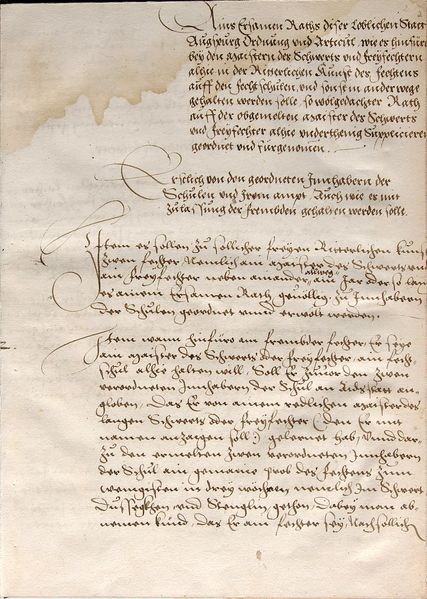 Ains Ersamen Raths diser Loblichen Statt
Augspurg Ordnung und Articul, wie es hinfüro
bey den Maistern des Schwerts und Freyfechtern
alhie in der Ritterlichen Kunst des fechtens
auff den fechtschulen, und sonst in ander wege
gehalten werden solle, so wolgedachter Rath
auff der obgemelten Maister des Schwerts
und freyfechter alhie underthenig Supplicieren
geordnet und fürgenomen.
Erstlich von den geordneten Innhabern der
Schulen und Irem ampt, Auch wie es mit
zulassung der frembden gehalten werden solle.
Item es sollen zu sollicher freyen Ritterlichen kunst
zwen fechter Nemlich ain Maister des Schwerts und
ain freyfechter neben ainander allweg ain Jar oder so lang
es ainem Ersamen Rath gevellig, zu Innhabern
der Schulen geordnet unnd erwolt werden.
Item wann hinfüro ain frembder fechter, Er seye
ain Maister des Schwerts oder freyfechter, ain fecht
schul alhie halten will, Soll Er zuvor den zwen
verordneten Innhabern der Schul an Aidsstatt an-
globen, Das Er von ainem redlichen Maister des
langen Schwerts oder freyfechter (den Er mit
namen anzaigen soll:) gelernet hab, Unnd dar-
zu den ermelten zwen verordneten Innhabern
der Schul ain gemaine prob des fechtens zum
wenigisten in drey wöhren, nemlich Im Schwert
Dussegkhen und Stenglin gethon, dabey man ab-
nemen künd, das Er ain fechter sey, Nach sollich